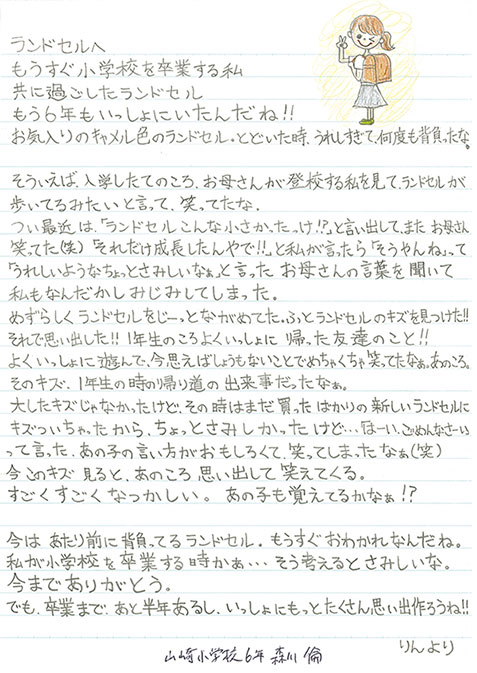 ランドセルへ
もうすぐ小学校を卒業する私
共に過ごしたランドセル
もう6年もいっしょにいたんだね!!
お気入りのキャメル色のランドセル。とどいた時、うれしすぎて、何度も背負ったな。
そういえば、入学したてのころ、お母さんが登校する私を見て、ランドセルが
歩いてるみたいと言って、笑ってたな。
つい最近は、「ランドセルこんな小さかったっけ!?」と言い出して、また お母さん
笑ってた(笑)「それだけ成長したんやで!!」と私が言ったら「そうやんね」って
「うれしいようなちょっとさみしいなぁ」と言った お母さんの言葉を聞いて
私もなんだかしみじみしてしまった。
めずらしくランドセルをじーっとながめてた。ふっとランドセルのキズを見つけた!!
それで思い出した!! 1年生のころよくいっしょに 帰った友達のこと!!
よくいっしょに遊んで、今思えばしょうもないことでめちゃくちゃ笑ってたなぁ。あのころ。
そのキズ、1年生の時の帰り道の出来事だったなぁ。
大したキズじゃなかったけど、その時はまだ買ったばかりの新しいランドセルに
キズついちゃったから、ちょっとさみしかったけど…はーい、ごめんなさーい
って言った、あの子の言い方がおもしろくて、笑ってしまったなぁ(笑)
今このキズ見ると、あのころ思い出して笑えてくる。
すごくすごくなつかしい。あの子も覚えてるかなぁ!?
今はあたり前に背負ってるランドセル。もうすぐおわかれなんだね。
私が小学校を卒業する時かぁ…そう考えるとさみしいな。
今までありがとう。
でも、卒業まで、あと半年あるし、いっしょにもっとたくさん思い出作ろうね!!
りんより
山崎小学校6年 森川 倫